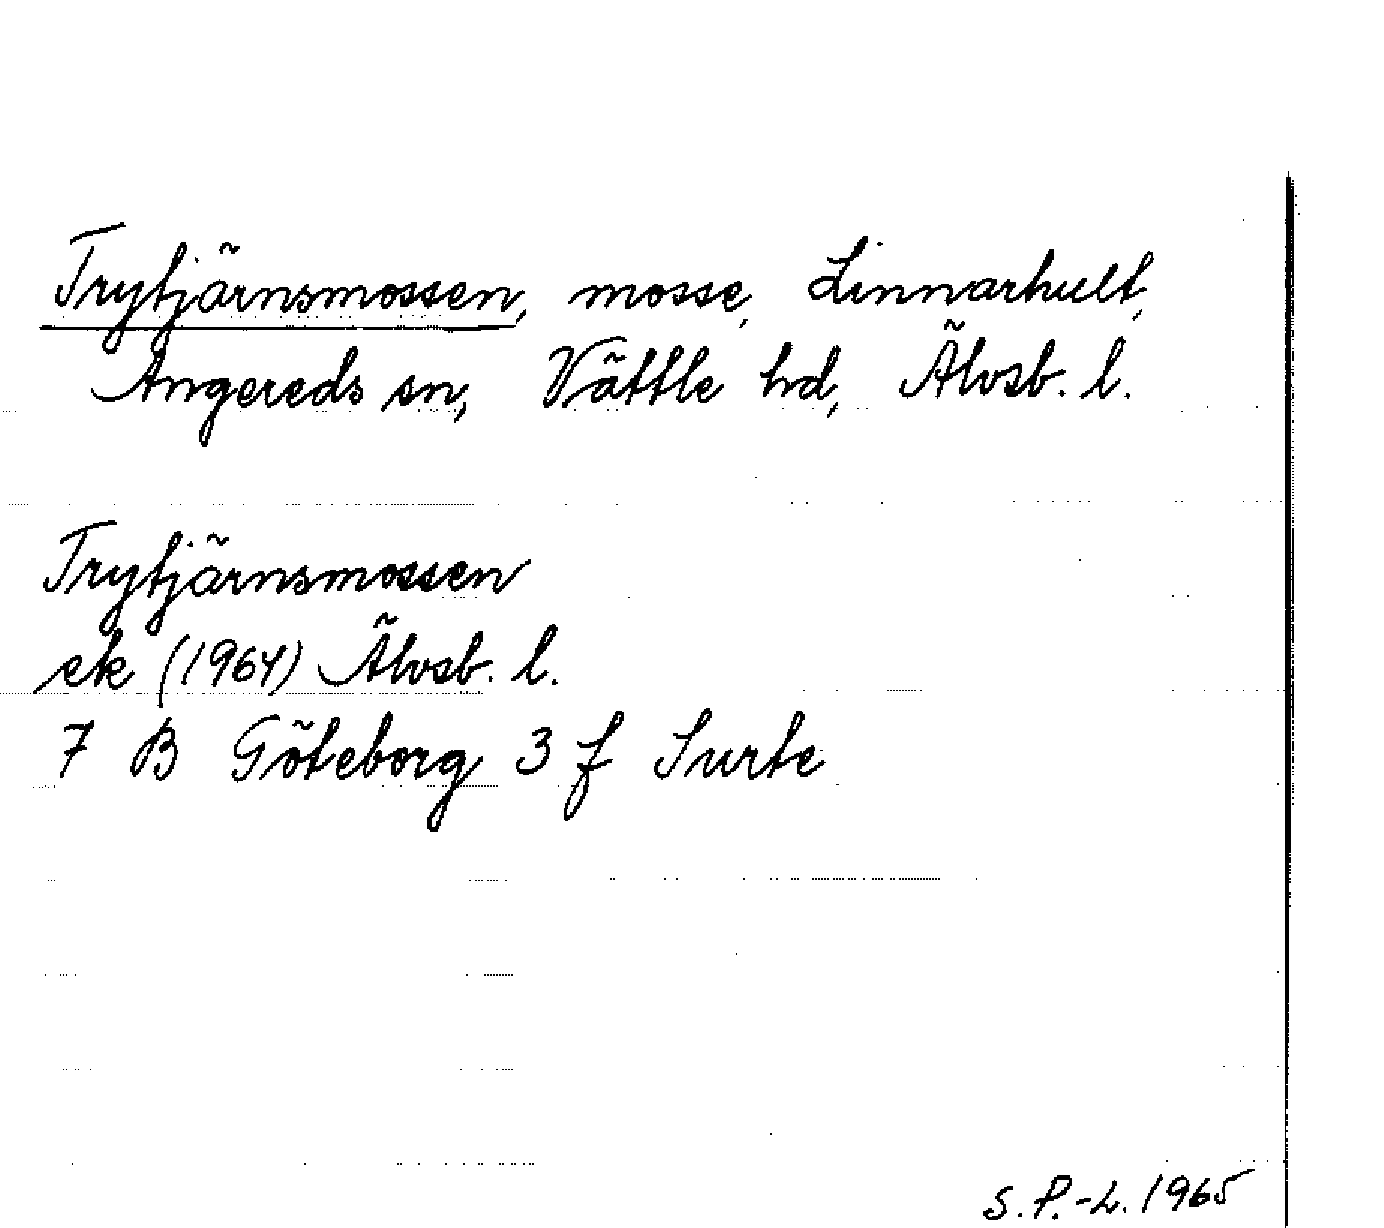 Trytjärnsmossen, mosse, Linnarhult,
Angereds sn, Vättle hd, Älvsb. l.
Trytjärnsmossen
ek (1964) Älvsb. l.
7 B Göteborg 3 f Surte
S. P.-L. 1965